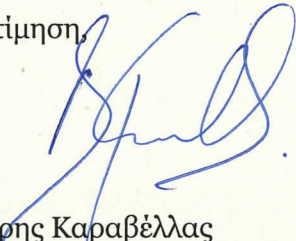 τίμηση,
ρης Καραβέλλας